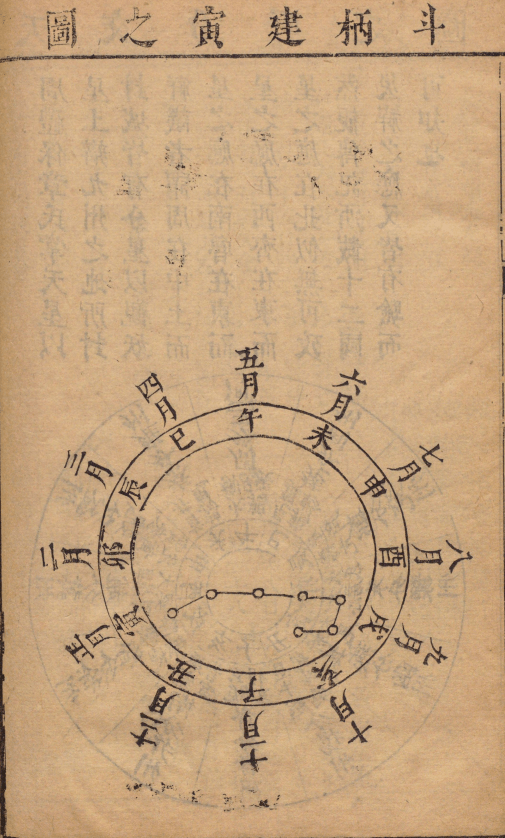 斗柄建寅之圖
五月
六月
七月
八月
九月
十月
十一月
十二月
正月
二月
三月
四月
午
未
申
酉
戌
亥
子
丑
寅
卯
辰
巳